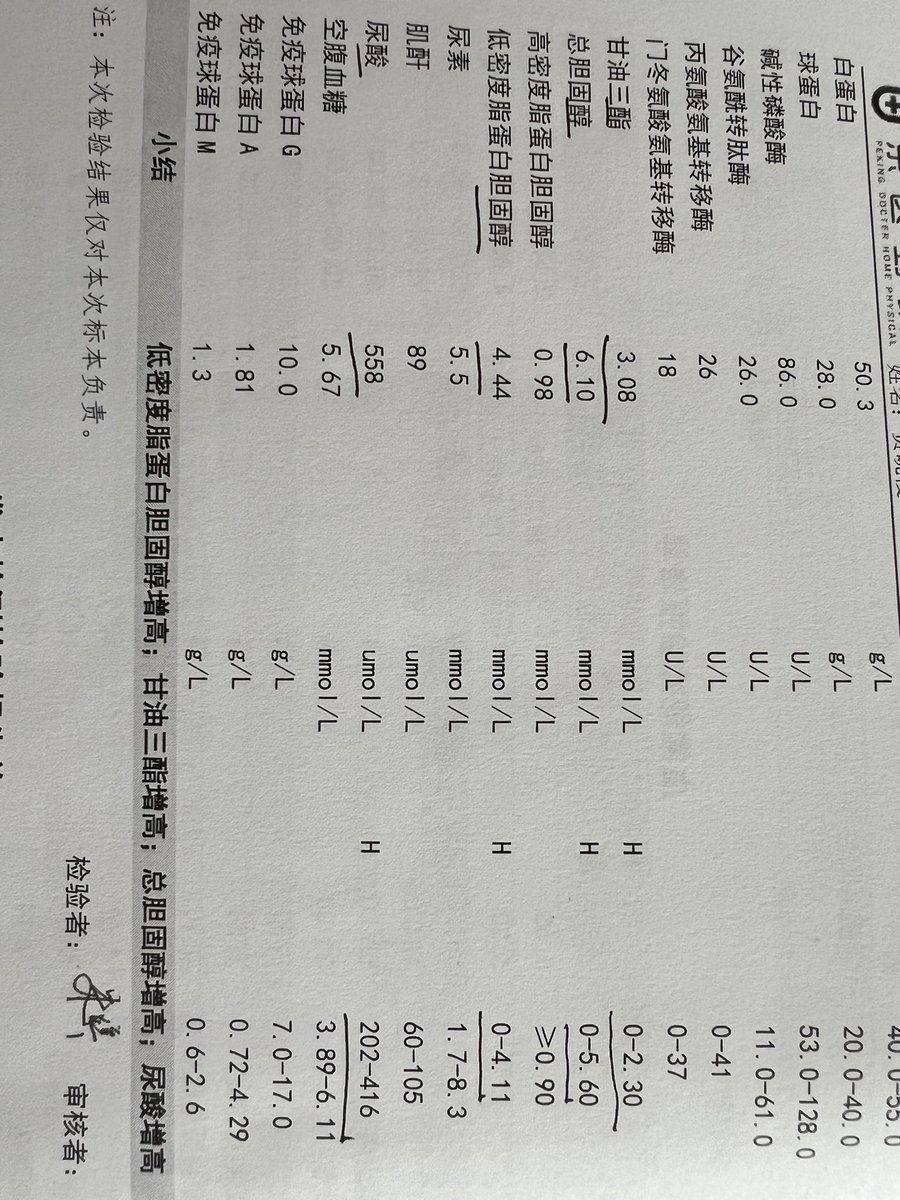 PEKING DOCTER HOME PHYSICAL 姓名:
白蛋白 50.3 g/L 40.0-55.0
球蛋白 28.0 g/L 20.0-40.0
碱性磷酸酶 86.0 U/L 53.0-128.0
谷氨酰转肽酶 26.0 U/L 11.0-61.0
丙氨酸氨基转移酶 26 U/L 0-41
门冬氨酸氨基转移酶 18 U/L 0-37
甘油三酯 3.08 mmol/L H 0-2.30
总胆固醇 6.10 mmol/L H 0-5.60
高密度脂蛋白胆固醇 0.98 mmol/L ≥0.90
低密度脂蛋白胆固醇 4.44 mmol/L H 0-4.11
尿素 5.5 mmol/L 1.7-8.3
肌酐 89 umol/L 60-105
尿酸 558 umol/L H 202-416
空腹血糖 5.67 mmol/L 3.89-6.11
免疫球蛋白G 10.0 g/L 7.0-17.0
免疫球蛋白A 1.81 g/L 0.72-4.29
免疫球蛋白M 1.3 g/L 0.6-2.6
小结 低密度脂蛋白胆固醇增高; 甘油三酯增高; 总胆固醇增高; 尿酸增高
注: 本次检验结果仅对本次标本负责。
检验者: 审核者: